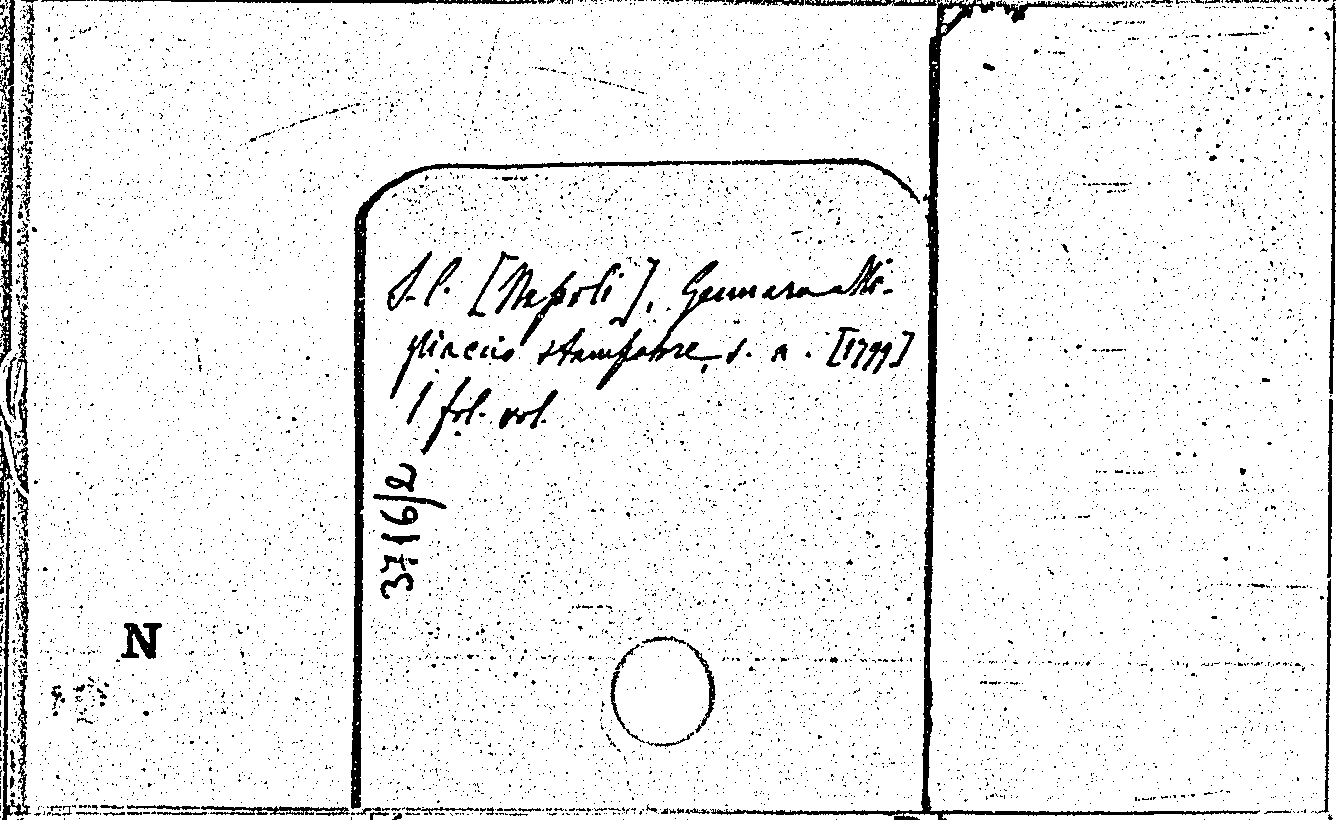 S. l. [Napoli], Gennaro Mi-
gliaccio stampatore, s. a. [1799]
1 fol. vol.
3716/2
N